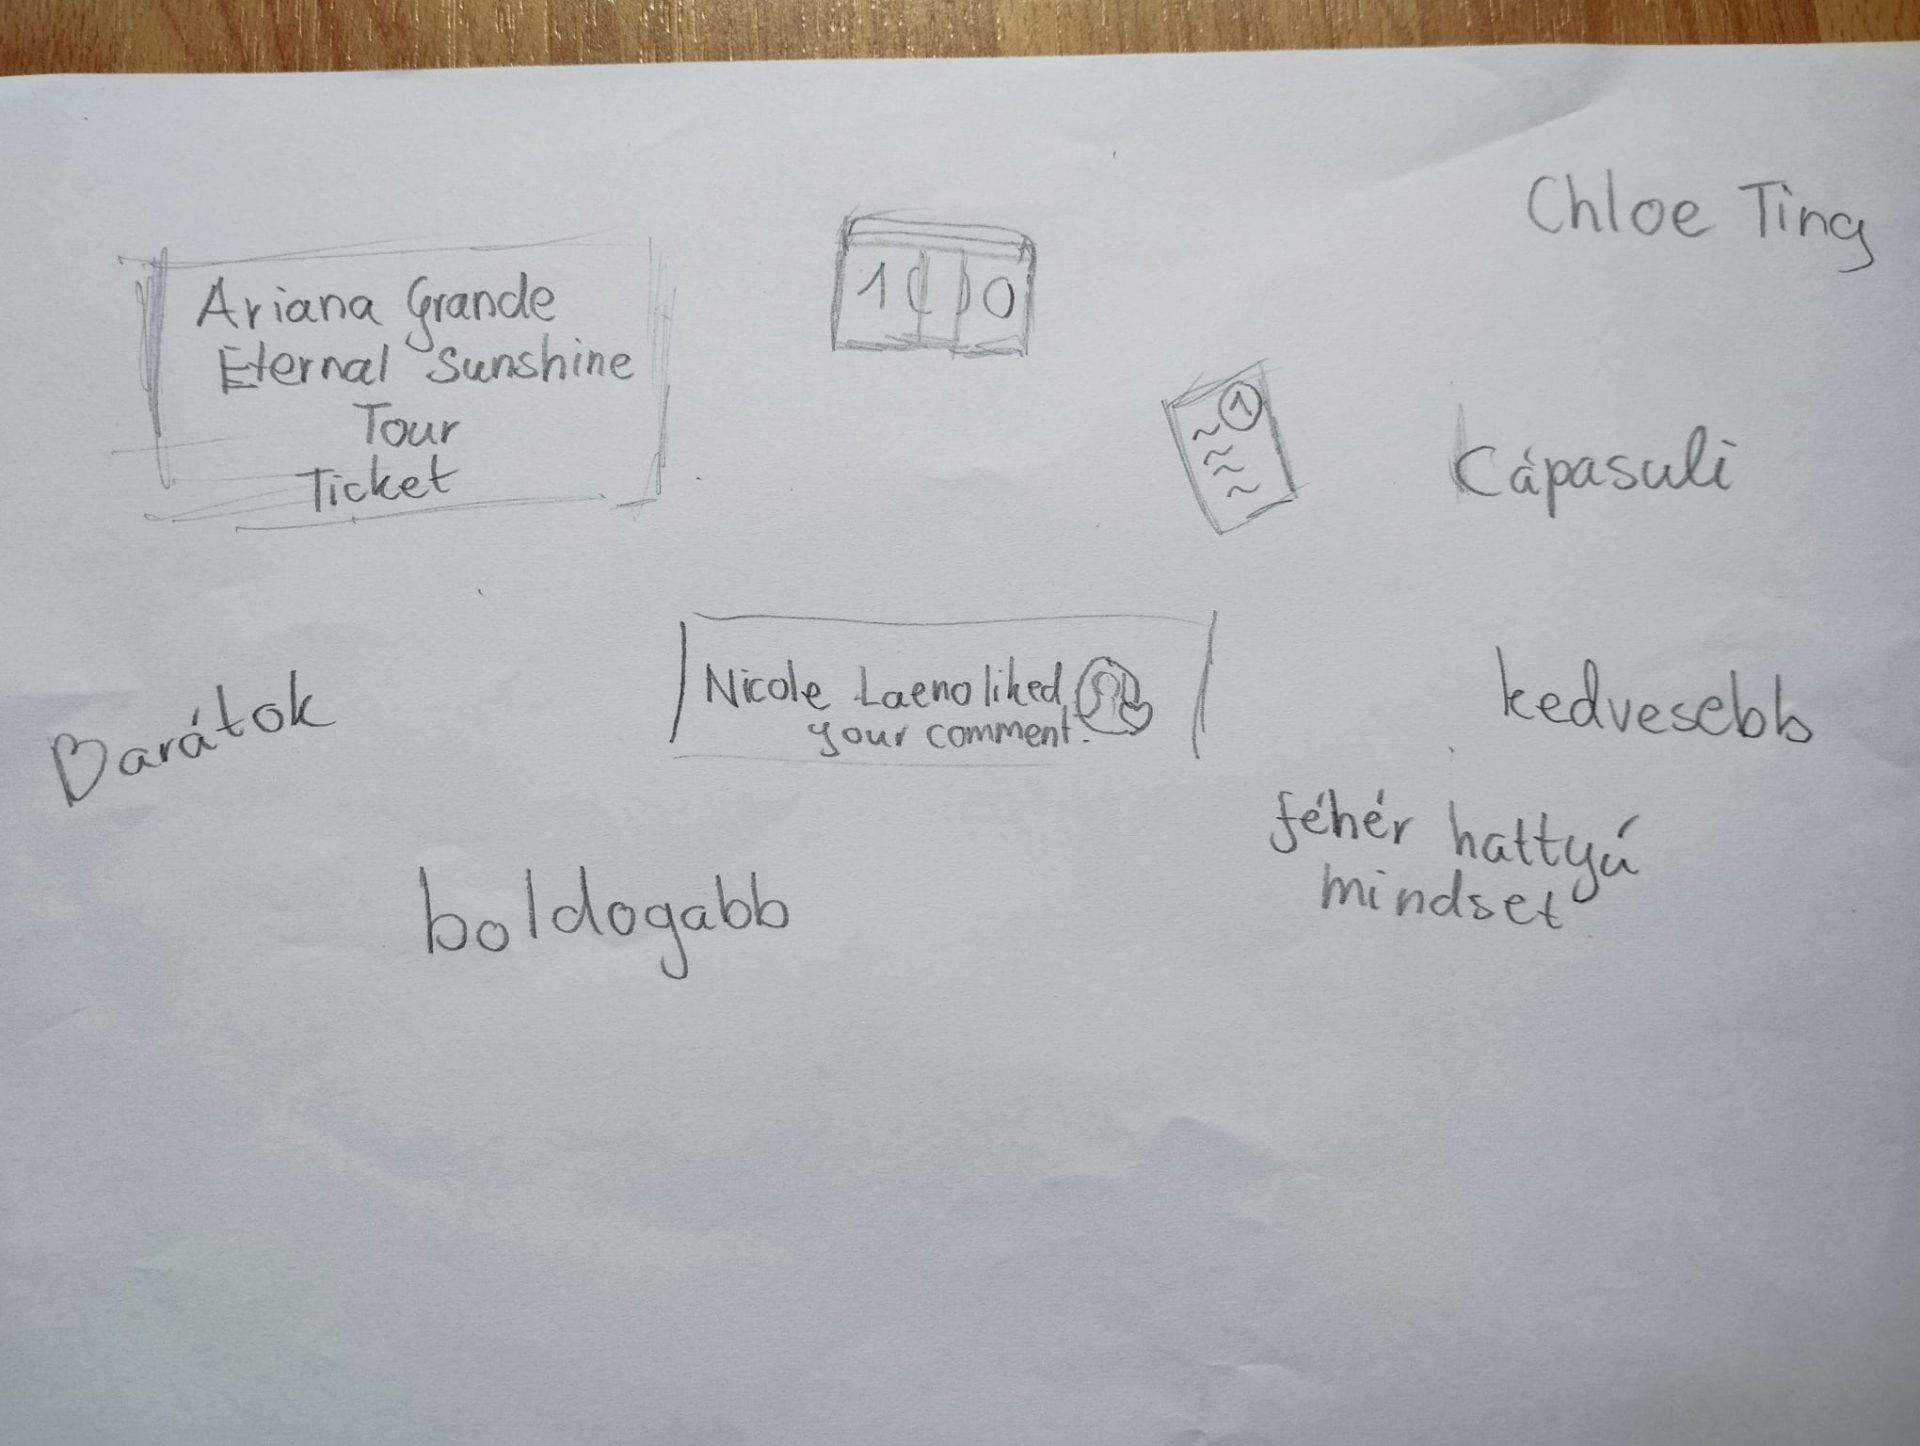 Chloe Ting
Ariana Grande
Eternal Sunshine
Tour
Ticket
100
1
Cápasuli
Nicole Laeno liked
your comment.
Barátok
kedvesebb
fehér hattyú
mindset
boldogabb